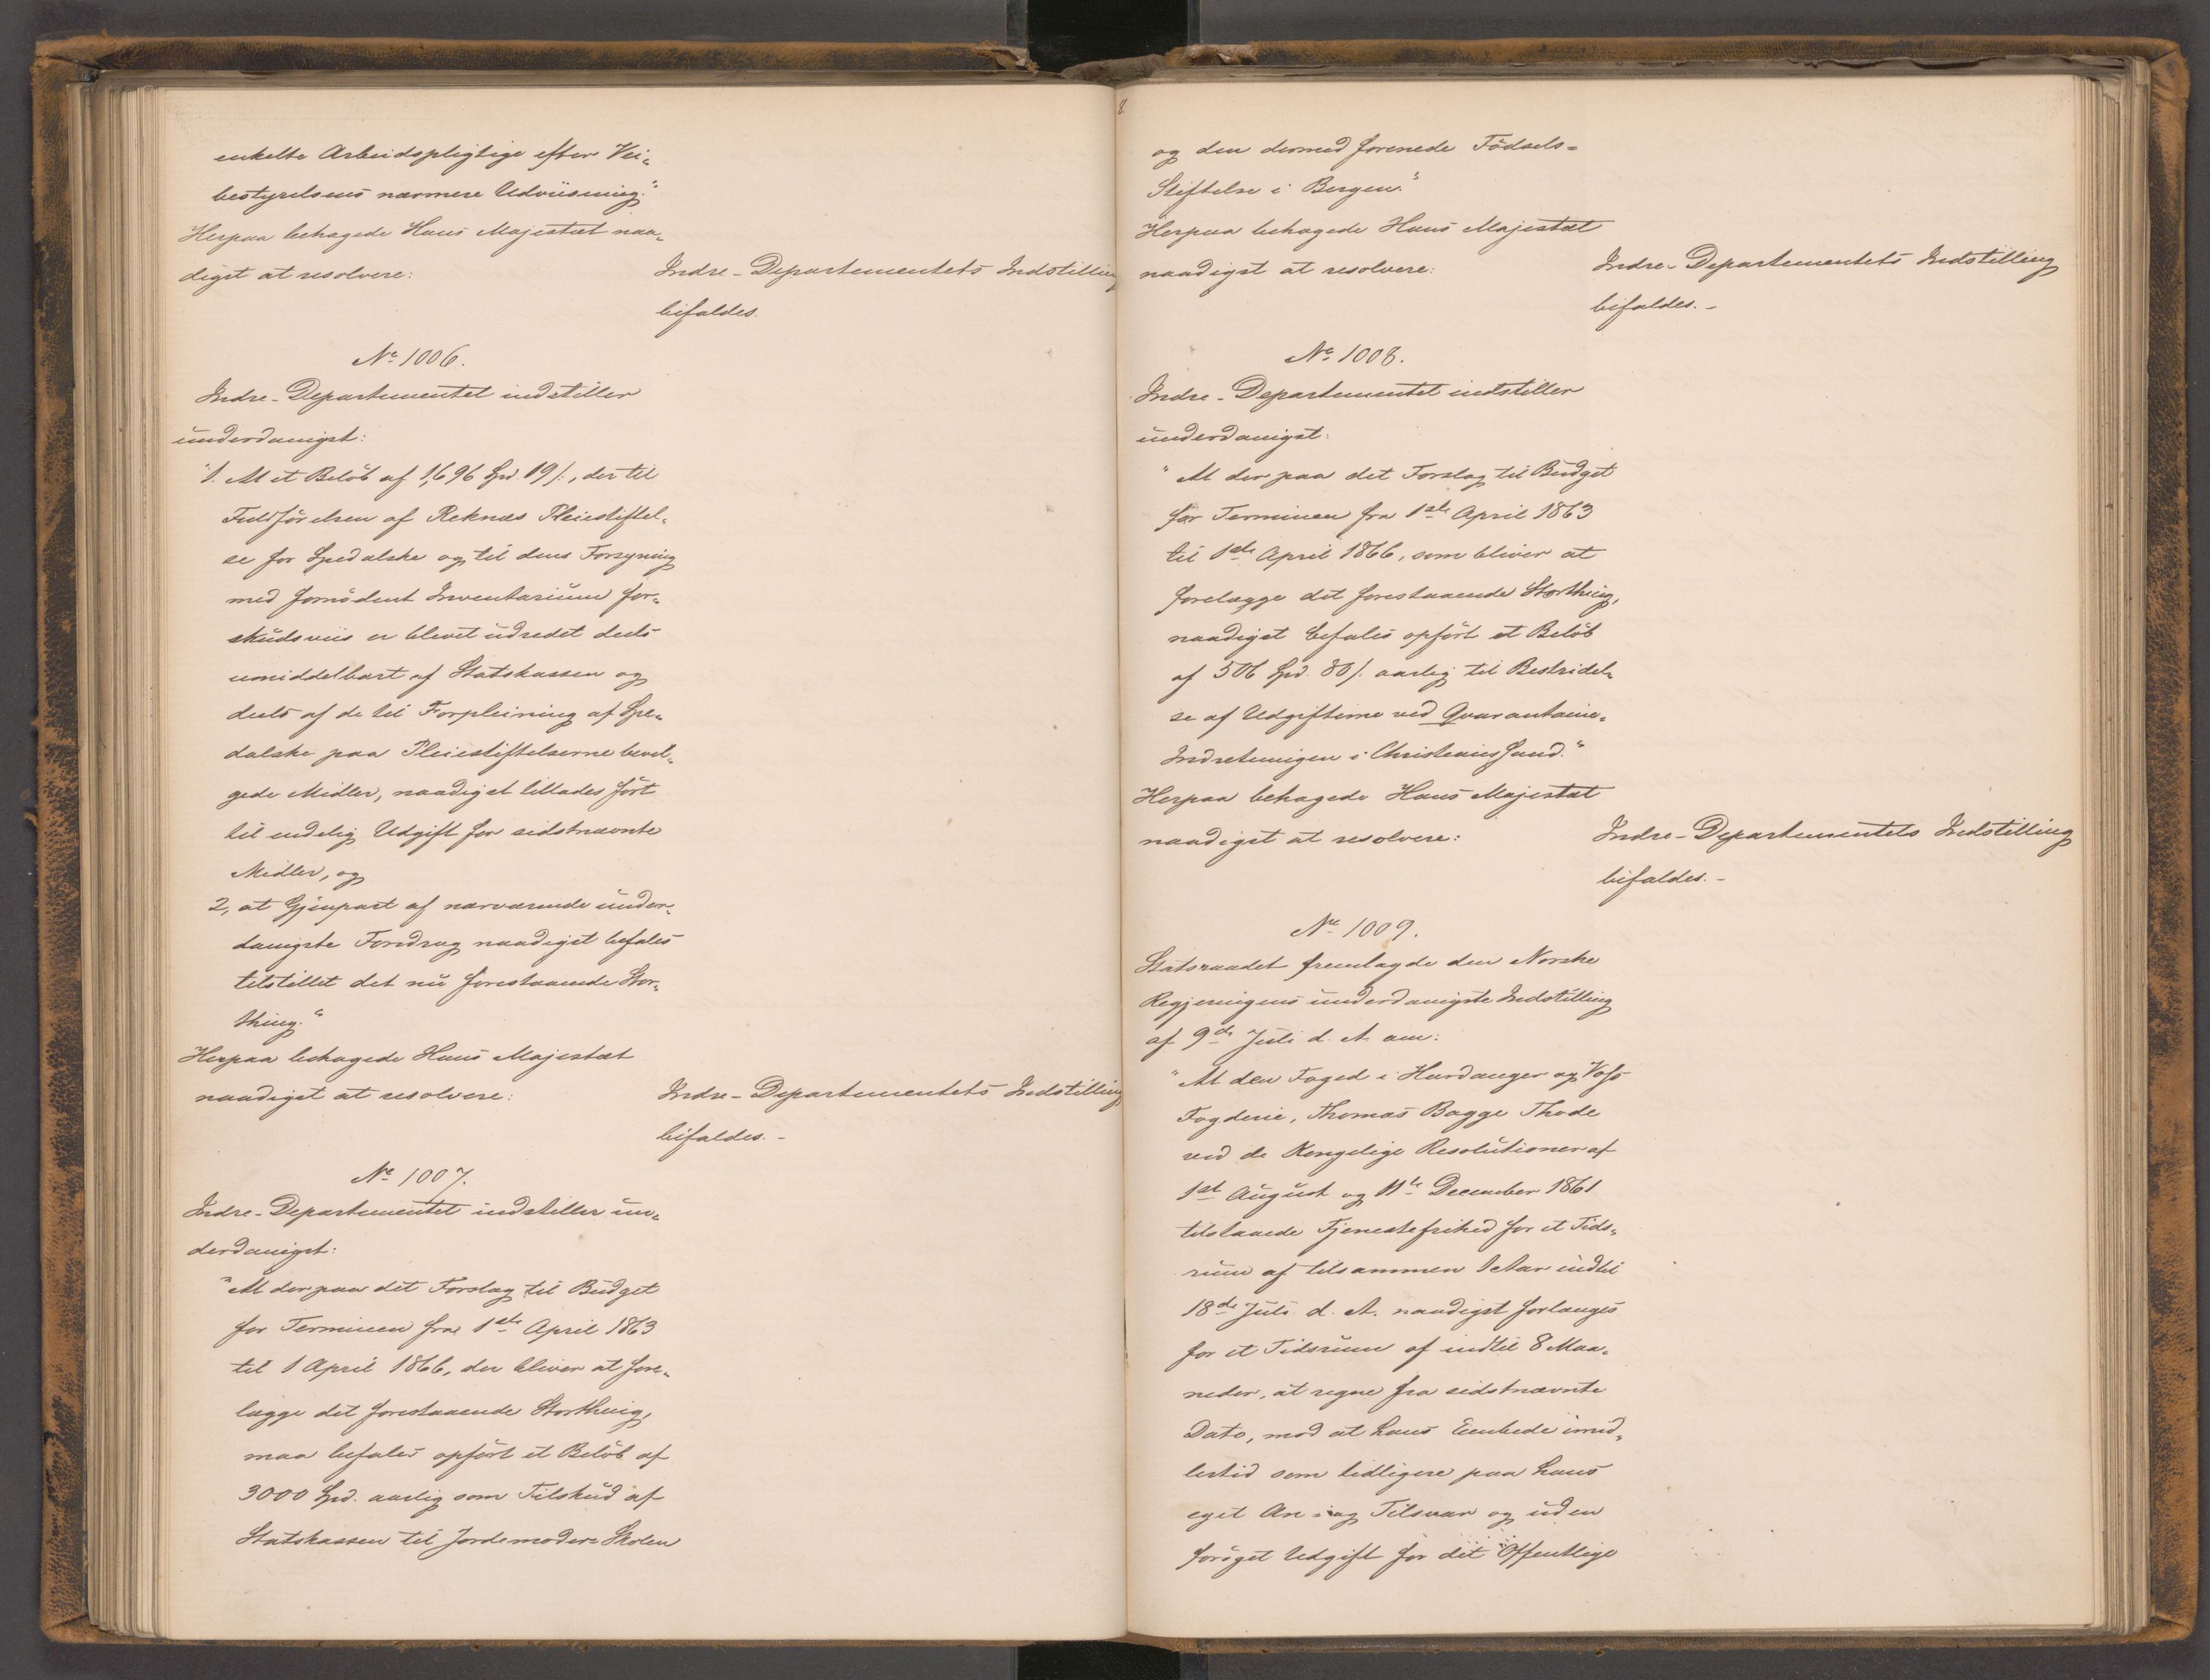 enkelte Arbeidspligtige efter Vei-
bestyrelsens nærmere Udviisning."
Herpaa behagede Hans Majestæt naa-
digst at resolvere:
Indre-Departementets Indstilling
bifaldes.
No 1006.
Indre-Departementet indstiller
underdanigst:
"1. At et Beløb af 1,696 Spd. 19 s., der til
Fuldførelsen af Reknæs Pleiestiftel-
se for Spedalske og til dens Forsyning
med fornødent Inventarium for-
skudsviis er blevet udredet deels
umiddelbart af Statskassen og
deels af de til Forpleining af Spe-
dalske paa Pleiestiftelserne bevil-
gede Midler, naadigst tillades ført
til endelig Udgift for sidstnævnte
Midler, og
2, at Gjenpart af nærværende under-
danigste Foredrag naadigst befales
tilstillet det nu forestaaende Stor-
thing."
Herpaa behagede Hans Majestæt
naadigst at resolvere:
Indre-Departementets Indstilling
bifaldes.-
No 1007.
Indre-Departementet indstiller un-
derdanigst:
"At der paa det Forslag til Budget
for Terminen fra 1ste April 1863
til 1 April 1866, der bliver at fore-
lægge det forestaaende Storthing,
maa befales opført et Beløb af
3000 Spd. aarlig som Tilskud af
Statskassen til Jordemoder-Skolen
8
og den dermed forenede Fødsels-
Stiftelse i Bergen."
Herpaa behagede Hans Majestæt
naadigst at resolvere:
Indre-Departementets Indstilling
bifaldes.-
No 1008.
Indre-Departementet indstiller
underdanigst:
"At der paa det Forslag til Budget
for Terminen fra 1ste April 1863
til 1ste April 1866, som bliver at
forelægge det forestaaende Storthing,
naadigst befales opført et Beløb
af 506 Spd. 80 s. aarlig til Bestridel-
se af Udgifterne ved Qvarantaine-
Indretningen i Christianssund."
Herpaa behagede Hans Majestæt
naadigst at resolvere:
Indre-Departementets Indstilling
bifaldes.-
No 1009.
Statsraadet fremlagde den Norske
Regjeringens underdanigste Indstilling
af 9de Juli d. A. om:
"At den Foged i Hardanger og Voss
Fogderie, Thomas Bagge Thode
ved de Kongelige Resolutioner af
1ste August og 11te December 1861
tilstaaede Tjenestefrihed for et Tids-
rum af tilsammen 1 Aar indtil
18de Juli d. A. naadigst forlænges
for et Tidsrum af indtil 8 Maa-
neder, at regne fra sidstnævnte
Dato, mod at hans Embede imid-
lertid som tidligere paa hans
eget An- og Tilsvar og uden
forøget Udgift for det Offentlige